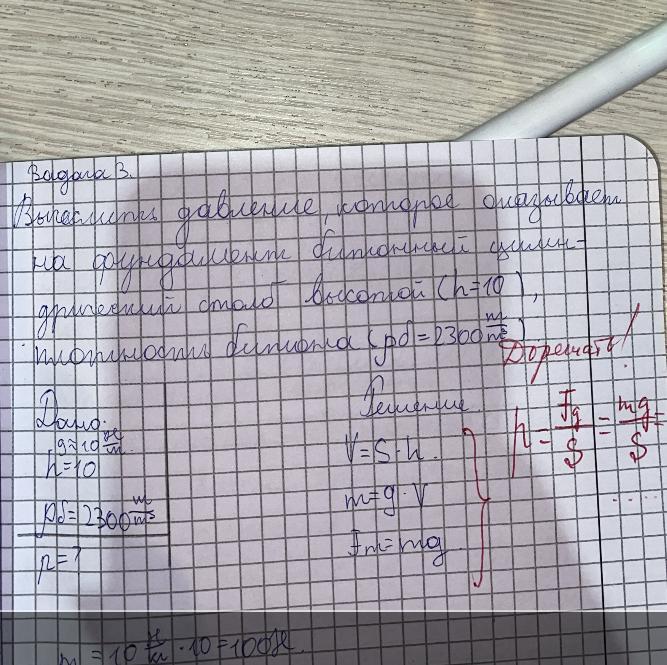 Задача 3.
Вычеслить давление, которое оказывает
на фундамент битонный цилин-
дрический столб высотой (h=10),
плотность битона (ρб=2300 м/м³)
Дорешать!
Дано:
g≈10 н/м
h=10
ρб=2300 м/м³
p=?
Решение
V=S·h.
m=g·V
Fт=mg
p = Fg/S = mg/S =
= 10 н/кг · 10 = 100н.